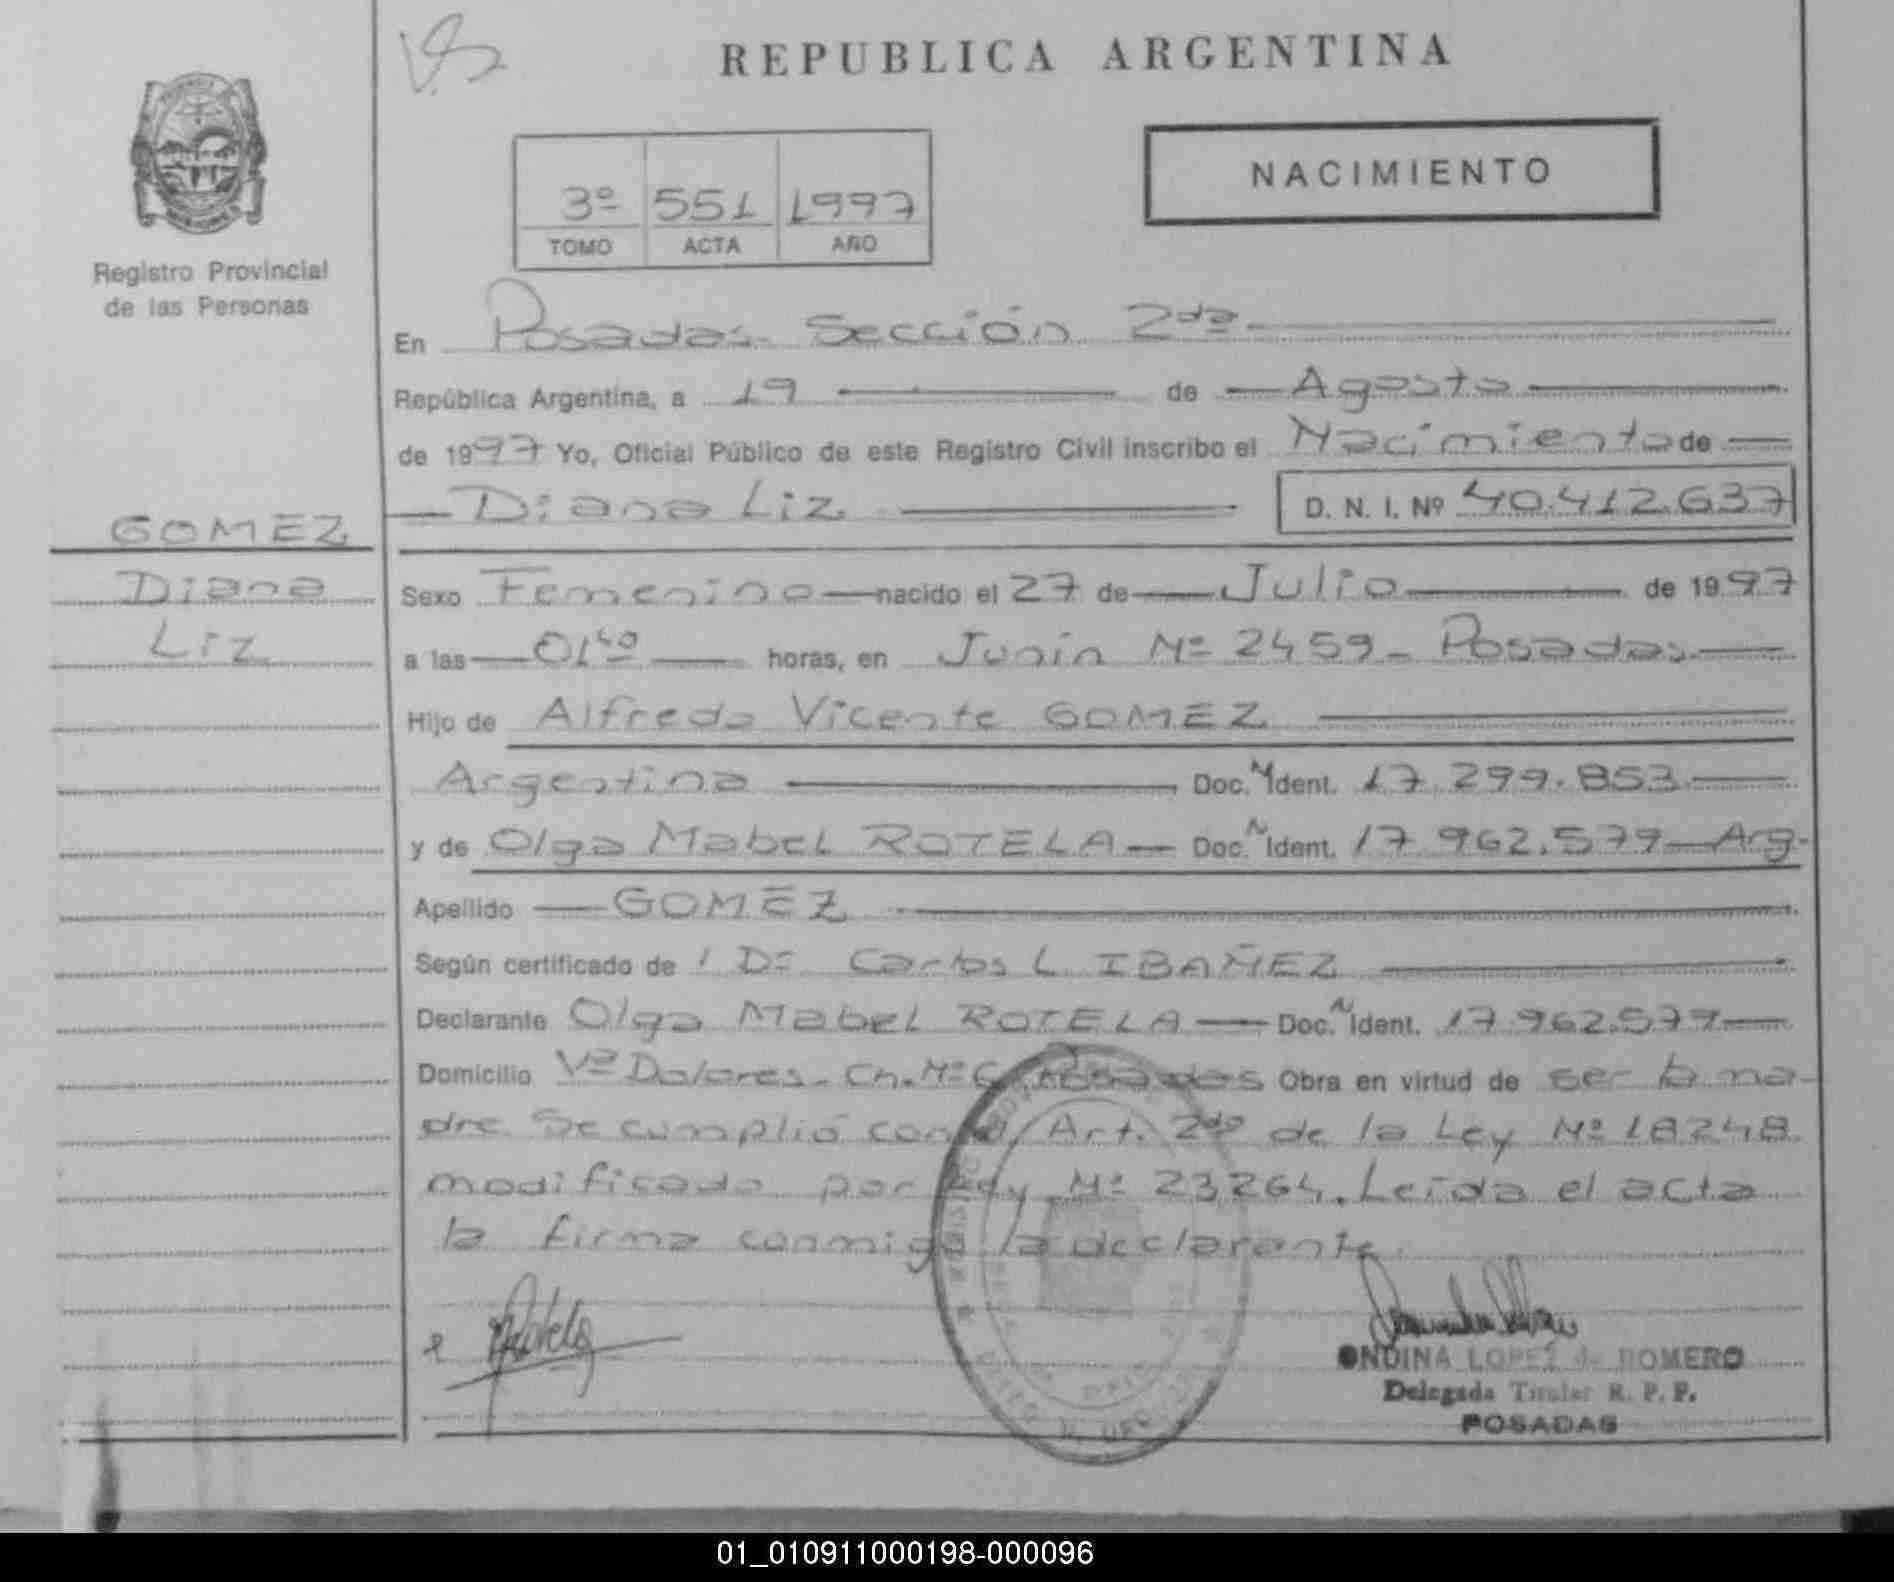 REPUBLICA ARGENTINA
NACIMIENTO
3º 551 1997
TOMO ACTA AÑO
Registro Provincial
de las Personas
En Posadas Sección 2da
República Argentina, a 19 de Agosto
de 1997 Yo, Oficial Público de este Registro Civil inscribo el Nacimiento de
Diana Liz D. N. I. Nº 40.412.637
GOMEZ
Diana
Liz
Sexo Femenino nacido el 27 de Julio de 1997
a las 01⁴⁰ horas, en Junín Nº 2459 - Posadas
Hijo de Alfredo Vicente GOMEZ
Argentina Doc. N Ident. 17.299.853
y de Olga Mabel ROTELA Doc. N Ident. 17.962.579 Arg.
Apellido GOMEZ
Según certificado de Dr Carlos L IBAÑEZ
Declarante Olga Mabel ROTELA Doc. N Ident. 17.962.579
Domicilio Vª Dolores. Ch. Nº Posadas Obra en virtud de ser la ma-
dre Se cumplió con Art. 2do de la Ley Nº 18248
modificado por Ley Nº 23264. Leída el acta
la firma conmigo la declarante.
ONDINA LOPEZ de ROMERO
Delegada Titular R. P. P.
POSADAS
01_010911000198-000096